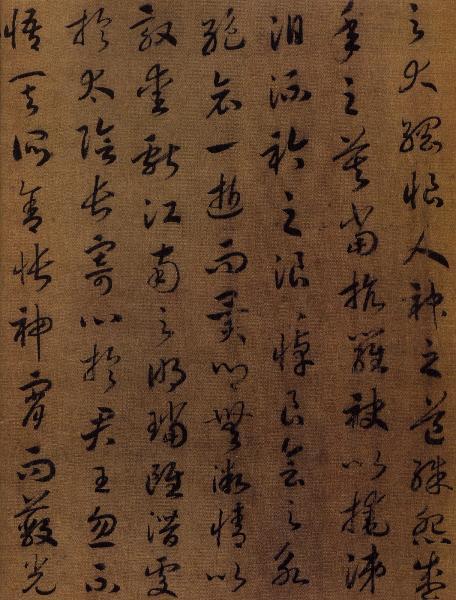 之大綱恨人神之道殊怨盛
年之莫當抗羅袂以掩涕
泪流衿之浪〻悼良會之永
絕哀一逝而異鄉無微情以
效愛獻江南之明璫雖潛處
於太陰長寄心於君王忽不
悟其所舍悵神宵而蔽光